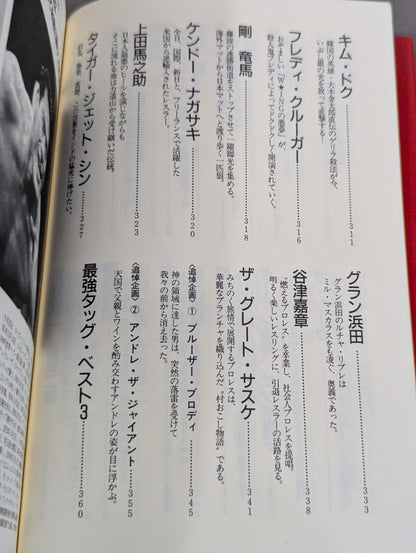 キム・ドク
韓国の英雄・大木金太郎直伝のゲリラ殺法が今、
いぶし銀の光を放って直撃する!
311
フレディ・クルーガー
おぞましい「W★INGの悪夢」が、
殺人鬼フレディによってドクドクしく開演されていく。
316
剛 竜馬
難波の連勝街道をストップさせて一躍脚光を集める。
海外マットから日本マットへと渡り歩く一匹狼。
318
ケンドー・ナガサキ
全日、国際、新日と、フリーランスで活躍した
米国から逆輸入されたレスラー。
320
上田馬之助
日本人最悪のヒールを演じながらも
そこに流れる血は力道山から受け継いだ伝統。
323
タイガー・ジェット・シン
この男をインドの猛虎に捧げたい。
327
グラン浜田
グラン浜田のルチャ・リブレは
ミル・マスカラスをも凌ぐ、奥義であった。
333
谷津嘉章
“燃えるプロレス”を卒業し、社会人プロレスを提唱。
明るく楽しいレスリングに、引退レスラーの活路を見る。
338
ザ・グレート・サスケ
みちのく旅情で展開するプロレスは、
華麗なプランチャを織り込んだ“村おこし物語”である。
341
〈追悼企画〉① ブルーザー・ブロディ
神の領域に達した男は、突然の落雷を受けて
我々の前から消え去った。
345
〈追悼企画〉② アンドレ・ザ・ジャイアント
天国で父親とワインを酌み交わすアンドレの姿が目に浮かぶ。
355
最強タッグ・ベスト3
360